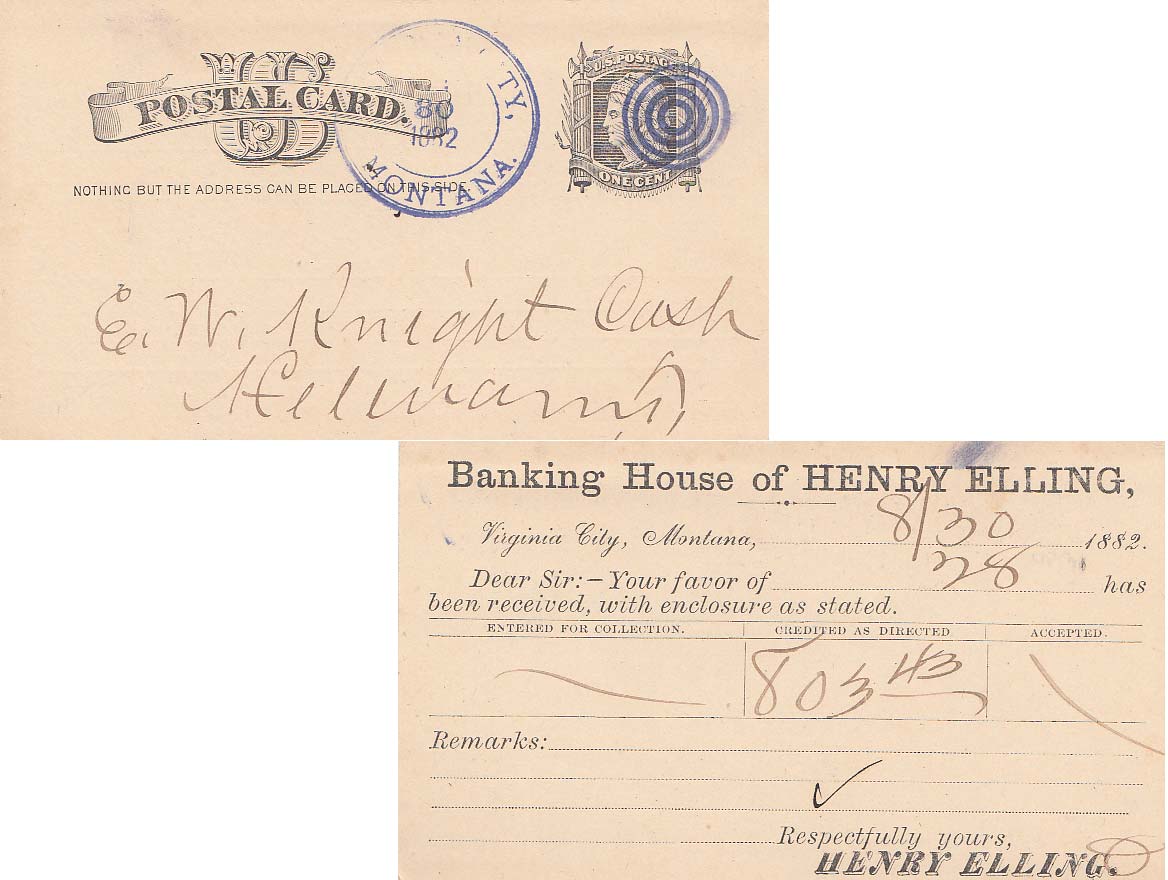 US
POSTAL CARD.
NOTHING BUT THE ADDRESS CAN BE PLACED ON THIS SIDE.
TY,
30
1882
MONTANA.
U.S. POSTAGE
ONE CENT
E. W. Knight Cash
Helena
Banking House of HENRY ELLING,
Virginia City, Montana, 8/30 1882.
Dear Sir:—Your favor of 28 has
been received, with enclosure as stated.
ENTERED FOR COLLECTION. CREDITED AS DIRECTED ACCEPTED.
803 43
Remarks:
Respectfully yours,
HENRY ELLING.